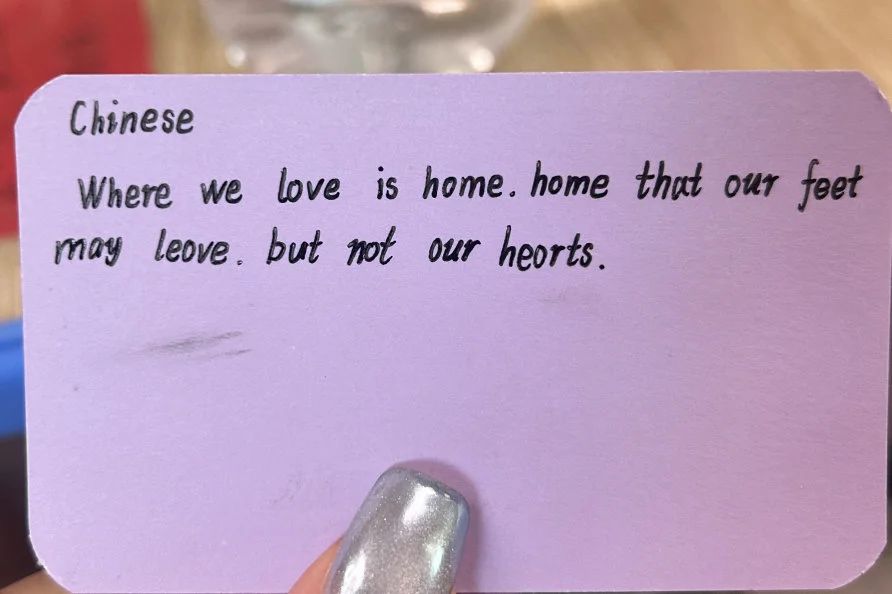 Chinese
Where we love is home. home that our feet
may leove. but not our heorts.